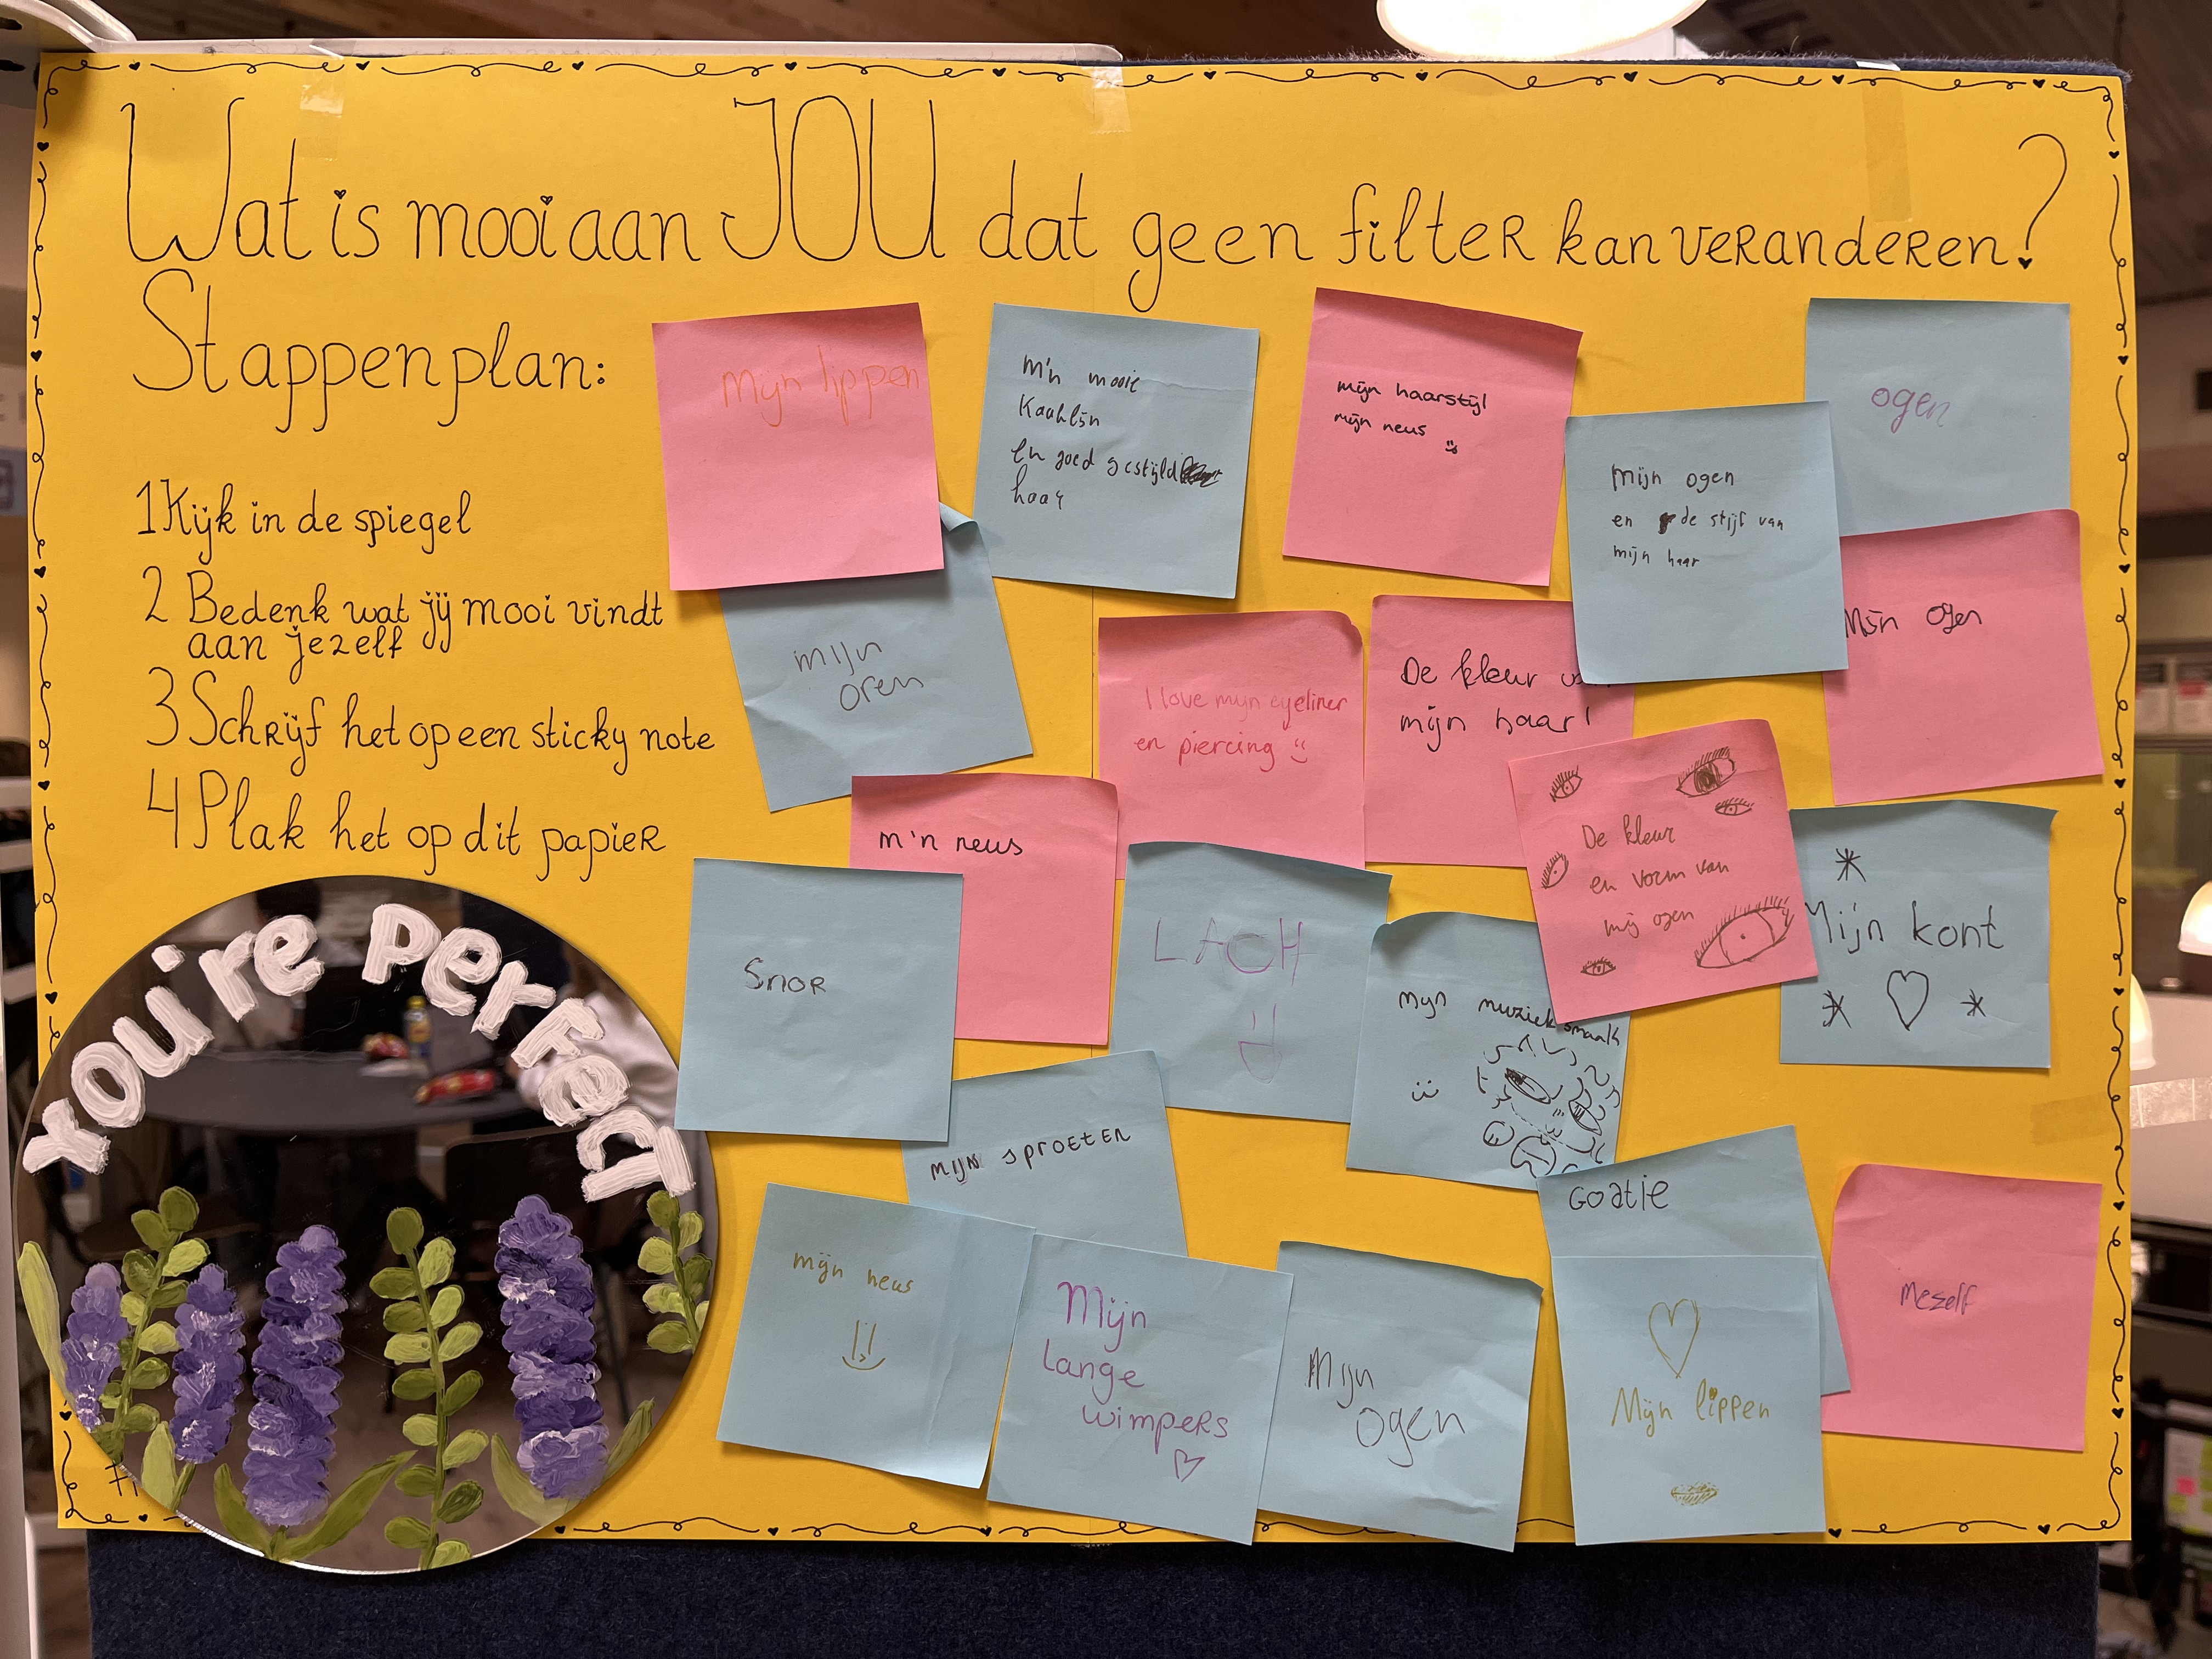 Wat is mooi aan JOU dat geen filter kan veranderen?
Stappenplan:
1 Kijk in de spiegel
2 Bedenk wat jij mooi vindt
aan jezelf
3 Schrijf het op een sticky note
4 Plak het op dit papier
You're perfect
Mijn lippen
m'n mooie
Kaaklijn
en goed gestijld
haar
mijn haarstijl
mijn neus
ogen
Mijn ogen
en de stijl van
mijn haar
Mijn ogen
mijn
oren
I love mijn eyeliner
en piercing
De kleur
mijn haar!
m'n neus
De kleur
en vorm van
mij ogen
Mijn kont
Snor
LACH
Mijn muzieksmaak
mijn sproeten
Goatje
mezelf
mijn neus
Mijn
Lange
wimpers
Mijn
ogen
Mijn lippen